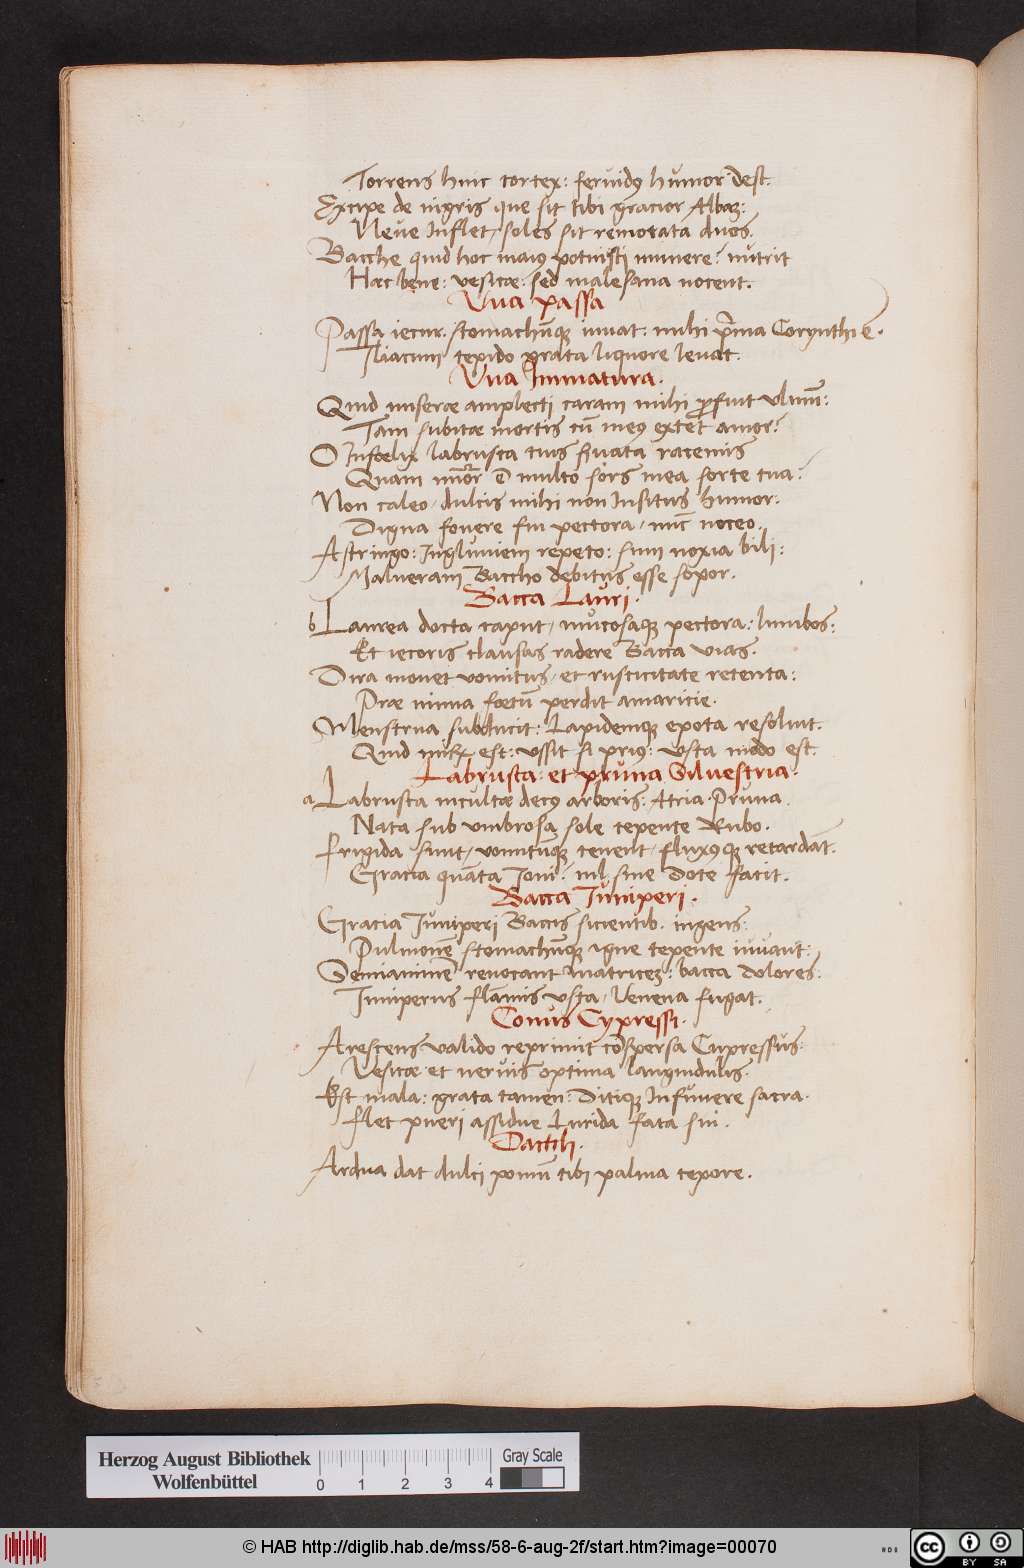 Torrens huic cortex: feruidꝰ humor dest.
Excipe de nigris que sit tibi gracior Albaꝫ:
Neue Inflet, soles sit remotata duos.
Bacche quid hoc maiꝰ potuisti munere? nutrit
Hæc bene: vesicæ: sed malesana nocent.
Vua passa
Passa iecur. stomachūqꝫ iuuat: mihi p̄ma Corynthiē.
Iliacum tepido grata liquore leuat.
Vua Immatura.
Quid miseræ amplecti caram mihi profuit vlmū:
Tam subitæ mortis cū meꝰ extet amor?
O Infoelix labrusta tuis seruata racemis
Quam multo sors mea sorte tua?
Non caleo, dulcis mihi non Insitus humor:
Digna fouere fui pectora, nūc noceo.
Astringo: Ingluuiem repeto: sum noxia bili:
Malueram Baccho debitus esse sopor.
Bacca Lauri.
b Laurea docta caput, mucosaqꝫ pectora: lumbos:
Et iecoris clausas radere Bacca vias.
Dira mouet vomitus, et rusticitate retenta:
Præ nimia foetū perdit amaritie.
Menstrua subducit: Lapidemqꝫ epota resoluit.
Quid mirꝝ est: vssit si priꝰ: vsta modo est.
Labrusta: et pruna Siluestria.
a Labrusta incultæ decꝰ arboris: Atria Pruna.
Nata sub vmbrosa sole tepente Rubo.
frigida sunt, vomitūqꝫ tenent, fluxꝰqꝫ retardāt.
Gracia quāta Ioui? nil sine dote facit.
Bacca Iuniperi.
Gracia Iuniperi Baccis sicientib. ingens:
Pulmonē stomachūqꝫ igne tepente iuuant:
Semianimē reuocant matricez: bacca dolores:
Iuniperus flāmis vsta, Venena fugat.
Conus Cypressi.
Arescens valido reprimit cōspersa Cupressus:
Vesicæ et neruis optima languidulis.
Est mala: grata tamen: Ditiqꝫ Infunere sacra.
flet pueri assidue Lurida fata sui.
Dactili.
Ardua dat dulci pomū tibi palma tepore.
Herzog August Bibliothek
Wolfenbüttel
0 1 2 3 4
Gray Scale
© HAB http://diglib.hab.de/mss/58-6-aug-2f/start.htm?image=00070
cc BY SA